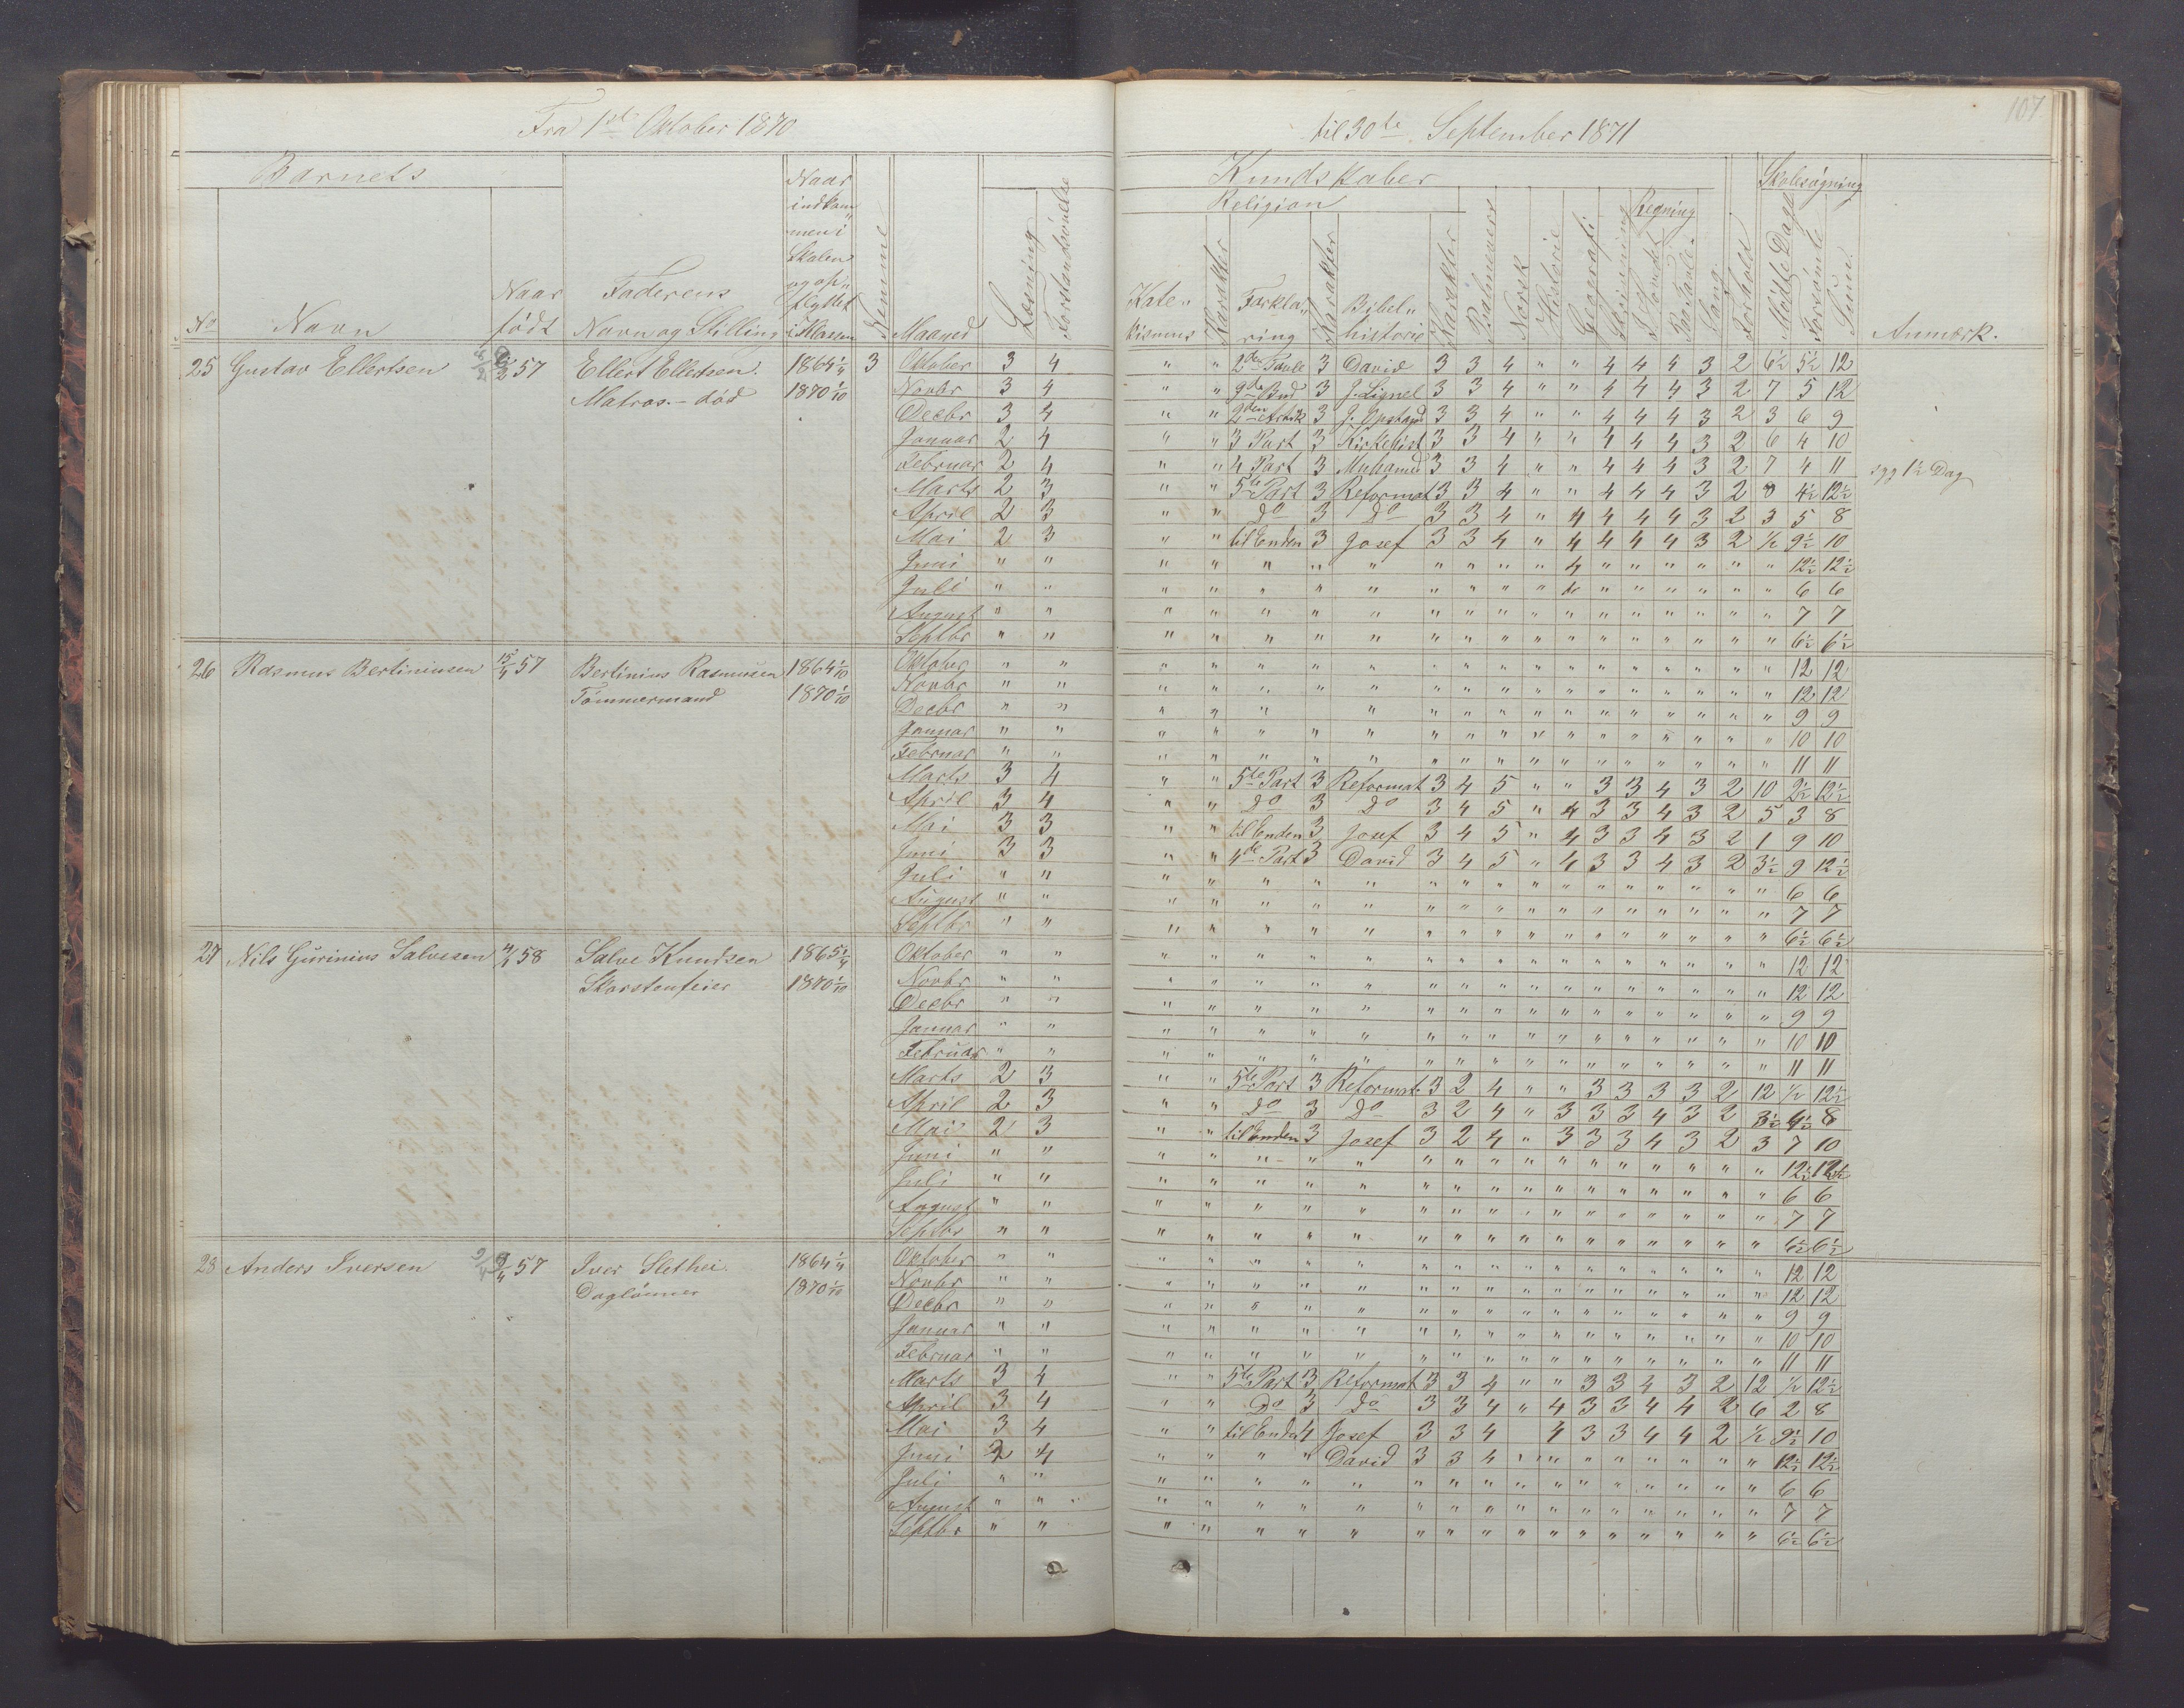 107
Fra 1ste Oktober 1870 til 30te September 1871
Barnets
Kundskaber
Religion
Regning
Skolesøgning
No Navn Naar født Faderens Navn og Stilling Naar indkommen i Skolen og opflyttet i Klassen Nemme Maaned Læsning Forstandsøvelse Katekismus Karakter Forklaring Karakter Bibelhistorie Karakter Psalmevers Norsk Historie Geografi Skrivning I Hovedet Paa Tavle Sang Forhold Mødte Dage Forsømte Sum Anmærk.
25 Gustav Ellertsen 8/2 57 Ellert Ellertsen. 1864 1/4 3 Oktober 3 4 " " 2den Tavle 3 David 3 3 4 " " 4 4 4 3 2 6½ 5½ 12
Matros. - død 1870 1/10 Novbr 3 4 " " 9de Bud 3 J. Lignel 3 3 4 " " 4 4 4 3 2 7 5 12
Decbr 3 4 " " 2den Artik 3 J. Opstand 3 3 4 " " 4 4 4 3 2 3 6 9
Januar 2 4 " " 3 Part 3 Kirkehist 3 3 4 " " 4 4 4 3 2 6 4 10
Februar 2 4 " " 4 Part 3 Muhamed 3 3 4 " " 4 4 4 3 2 7 4 11 syg 1½ Dag
Marts 2 3 " " 5te Part 3 Reformat 3 3 4 " " 4 4 4 3 2 8 4½ 12½
April 2 3 " " Do 3 Do 3 3 4 " 4 4 4 4 3 2 3 5 8
Mai 2 3 " " til Enden 3 Josef 3 3 4 " 4 4 4 4 3 2 ½ 9½ 10
Juni " " " " " " " " " " " 4 " " " " " " 12½ 12½
Juli " " " " " " " " " " " " " " " " " 6 6
August " " " " " " " " " " " " " " " " " " 7 7
Septbr " " " " " " " " " " " " " " " " " " 6½ 6½
26 Rasmus Bertiniusen 15/4 57 Bertinius Rasmusen 1864 1/10 Oktober " " " " " " " " " " " " " " " " " " 12 12
Tømmermand 1870 1/10 Novbr " " " " " " " " " " " " " " " " " " 12 12
Decbr " " " " " " " " " " " " " " " " " 9 9
Januar " " " " " " " " " " " " " " " " " " 10 10
Februar " " " " " " " " " " " " " " " " " " 11 11
Marts 3 4 " " 5te Part 3 Reformat 3 4 5 " " 3 3 4 3 2 10 2½ 12½
April 3 4 " " Do 3 Do 3 4 5 " 4 3 3 4 3 2 5 3 8
Mai 3 3 " " til Enden 3 Josef 3 4 5 " 4 3 3 4 3 2 1 9 10
Juni 3 3 " " 4de Part 3 David 3 4 5 " 4 3 3 4 3 2 3½ 9 12½
Juli " " " " " " " " " " " " " " " " " " 6 6
August " " " " " " " " " " " " " " " " " " 7 7
Septbr " " " " " " " " " " " " " " " " " " 6½ 6½
27 Nils Gurinius Salvesen 4/1 58 Salve Knudsen 1865 1/4 Oktober " " " " " " " " " " " " " " " " " " 12 12
Skorstenfeier 1870 1/10 Novbr " " " " " " " " " " " " " " " " " " 12 12
Decbr " " " " " " " " " " " " " " " " " " 9 9
Januar " " " " " " " " " " " " " " " " " " 10 10
Februar " " " " " " " " " " " " " " " " " " 11 11
Marts 2 3 " " 5te Part 3 Reformat 3 2 4 " " 3 3 3 3 2 12 ½ 12½
April 2 3 " " Do 3 Do 3 2 4 " 3 3 3 4 3 2 3½ 4½ 8
Mai 2 3 " " til Enden 3 Josef 3 2 4 " 3 3 3 4 3 2 3 7 10
Juni " " " " " " " " " " " " " " " " " " 12½ 12½
Juli " " " " " " " " " " " " " " " " " " 6 6
August " " " " " " " " " " " " " " " " " " 7 7
Septbr " " " " " " " " " " " " " " " " " " 6½ 6½
28 Anders Iversen 9/4 57 Iver Slethei. 1864 1/4 Oktober " " " " " " " " " " " " " " " " " " 12 12
Daglønner 1870 1/10 Novbr " " " " " " " " " " " " " " " " " " 12 12
Decbr " " " " " " " " " " " " " " " " " " 9 9
Januar " " " " " " " " " " " " " " " " " " 10 10
Februar " " " " " " " " " " " " " " " " " " 11 11
Marts 3 4 " " 5te Part 3 Reformat 3 3 4 " " 3 3 4 3 2 12 ½ 12½
April 3 4 " " Do 3 Do 3 3 4 " 4 3 3 4 4 2 6 2 8
Mai 3 4 " " til Enden 4 Josef 3 3 4 4 3 3 4 4 2 ½ 9½ 10
Juni 2 4 " " " " David 3 3 4 " " " " " " " " 12½ 12½
Juli " " " " " " " " " " " " " " " " " " 6 6
August " " " " " " " " " " " " " " " " " " 7 7
Septbr " " " " " " " " " " " " " " " " " " 6½ 6½